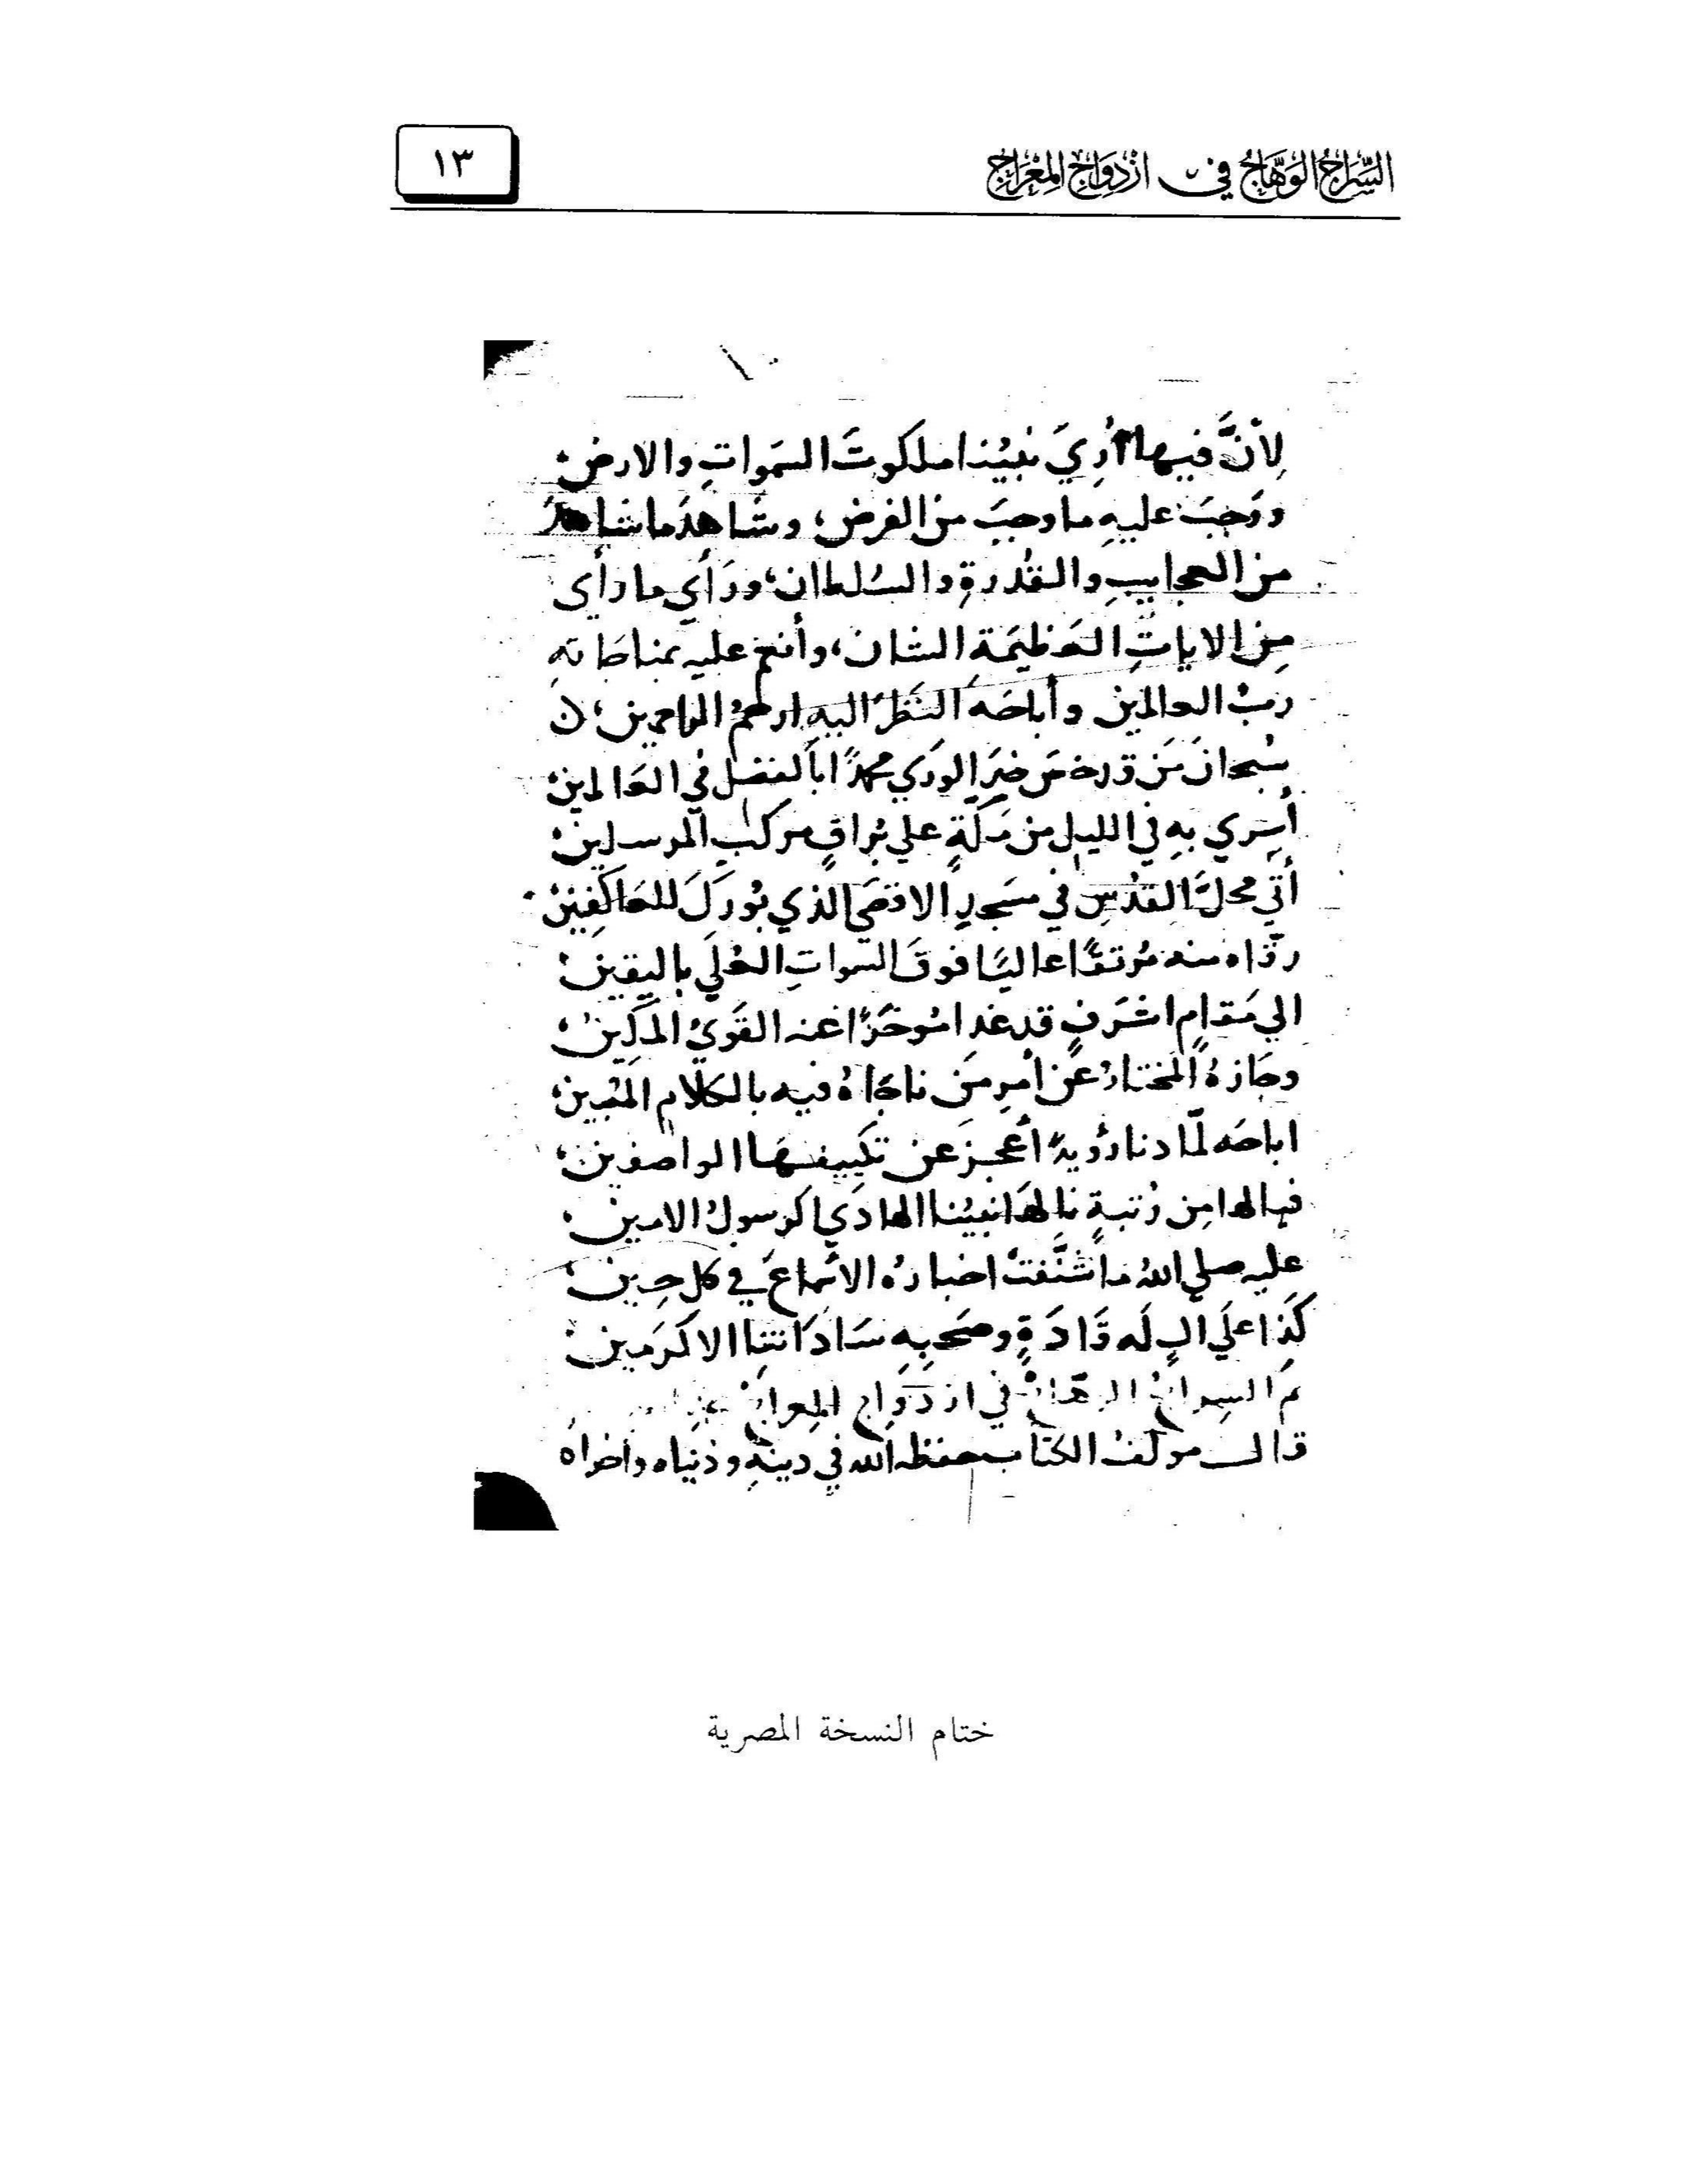 السِّرَاجُ الوَهَّاجُ في ازْدِوَاجِ المِعْرَاجِ
١٣
لِأنَّ فيها أُرِيَ نبيُّنا ملكوتَ السَّمواتِ والارضِ
ووَجبَ عليهِ ما وجبَ من الفرض، وشاهدَ ما شاهدَ
من العجايبِ والقُدرةِ والسُلطان، ورَأي ما رأى
مِن الاياتِ العَظيمَةِ الشان، وأنعم عليه بمناجاته
ربُّ العالمين وأباحَه النَظَرَ اليهِ ارحمُ الراحمين،
سُبحانَ مَن قد خصَّ خيرَ الورَي محمدًا بالفضل في العَالمين
أَسرِي بهِ في الليل من مَكَّةٍ علي بُراقٍ مركبِ المرسلين
أتي محلَّ القُدْسِ في مسَجدِ الاقصَي الذي بُورِكَ للعَاكفِين
رقاه منه مُرتقًا عاليًا فوقَ السمواتِ العُلَي باليقين
الي مَقامٍ اشرَفٍ قد غدا مُوخَرًا عنه القَوِيُّ المَكِين
وجَازهُ المختارُ عَن أمرِ مَن ناجَاهُ فيه بالكلامِ المُبين
اباحَه لمّا دنا رُؤيةً أَعجزَ عن تكييفهَا الواصفين
فيالها مِن رُتبةٍ نالهَا نبيُنا الهادي الرسولُ الامين
عليه صلي اللهُ ما شَنَّفتْ اخبارُه الأسماعَ في كل حِين
كَذا علَي الٍ لَه قَادَةٍ وصَحبِهِ سَادَاتنا الاكرَمين
تمَ السراجُ الوهَّاجُ في ازدواج المعراج
قال مولفُ الكتاب حفظه الله في دينهِ ودنياه وأخراه
ختام النسخة المصرية